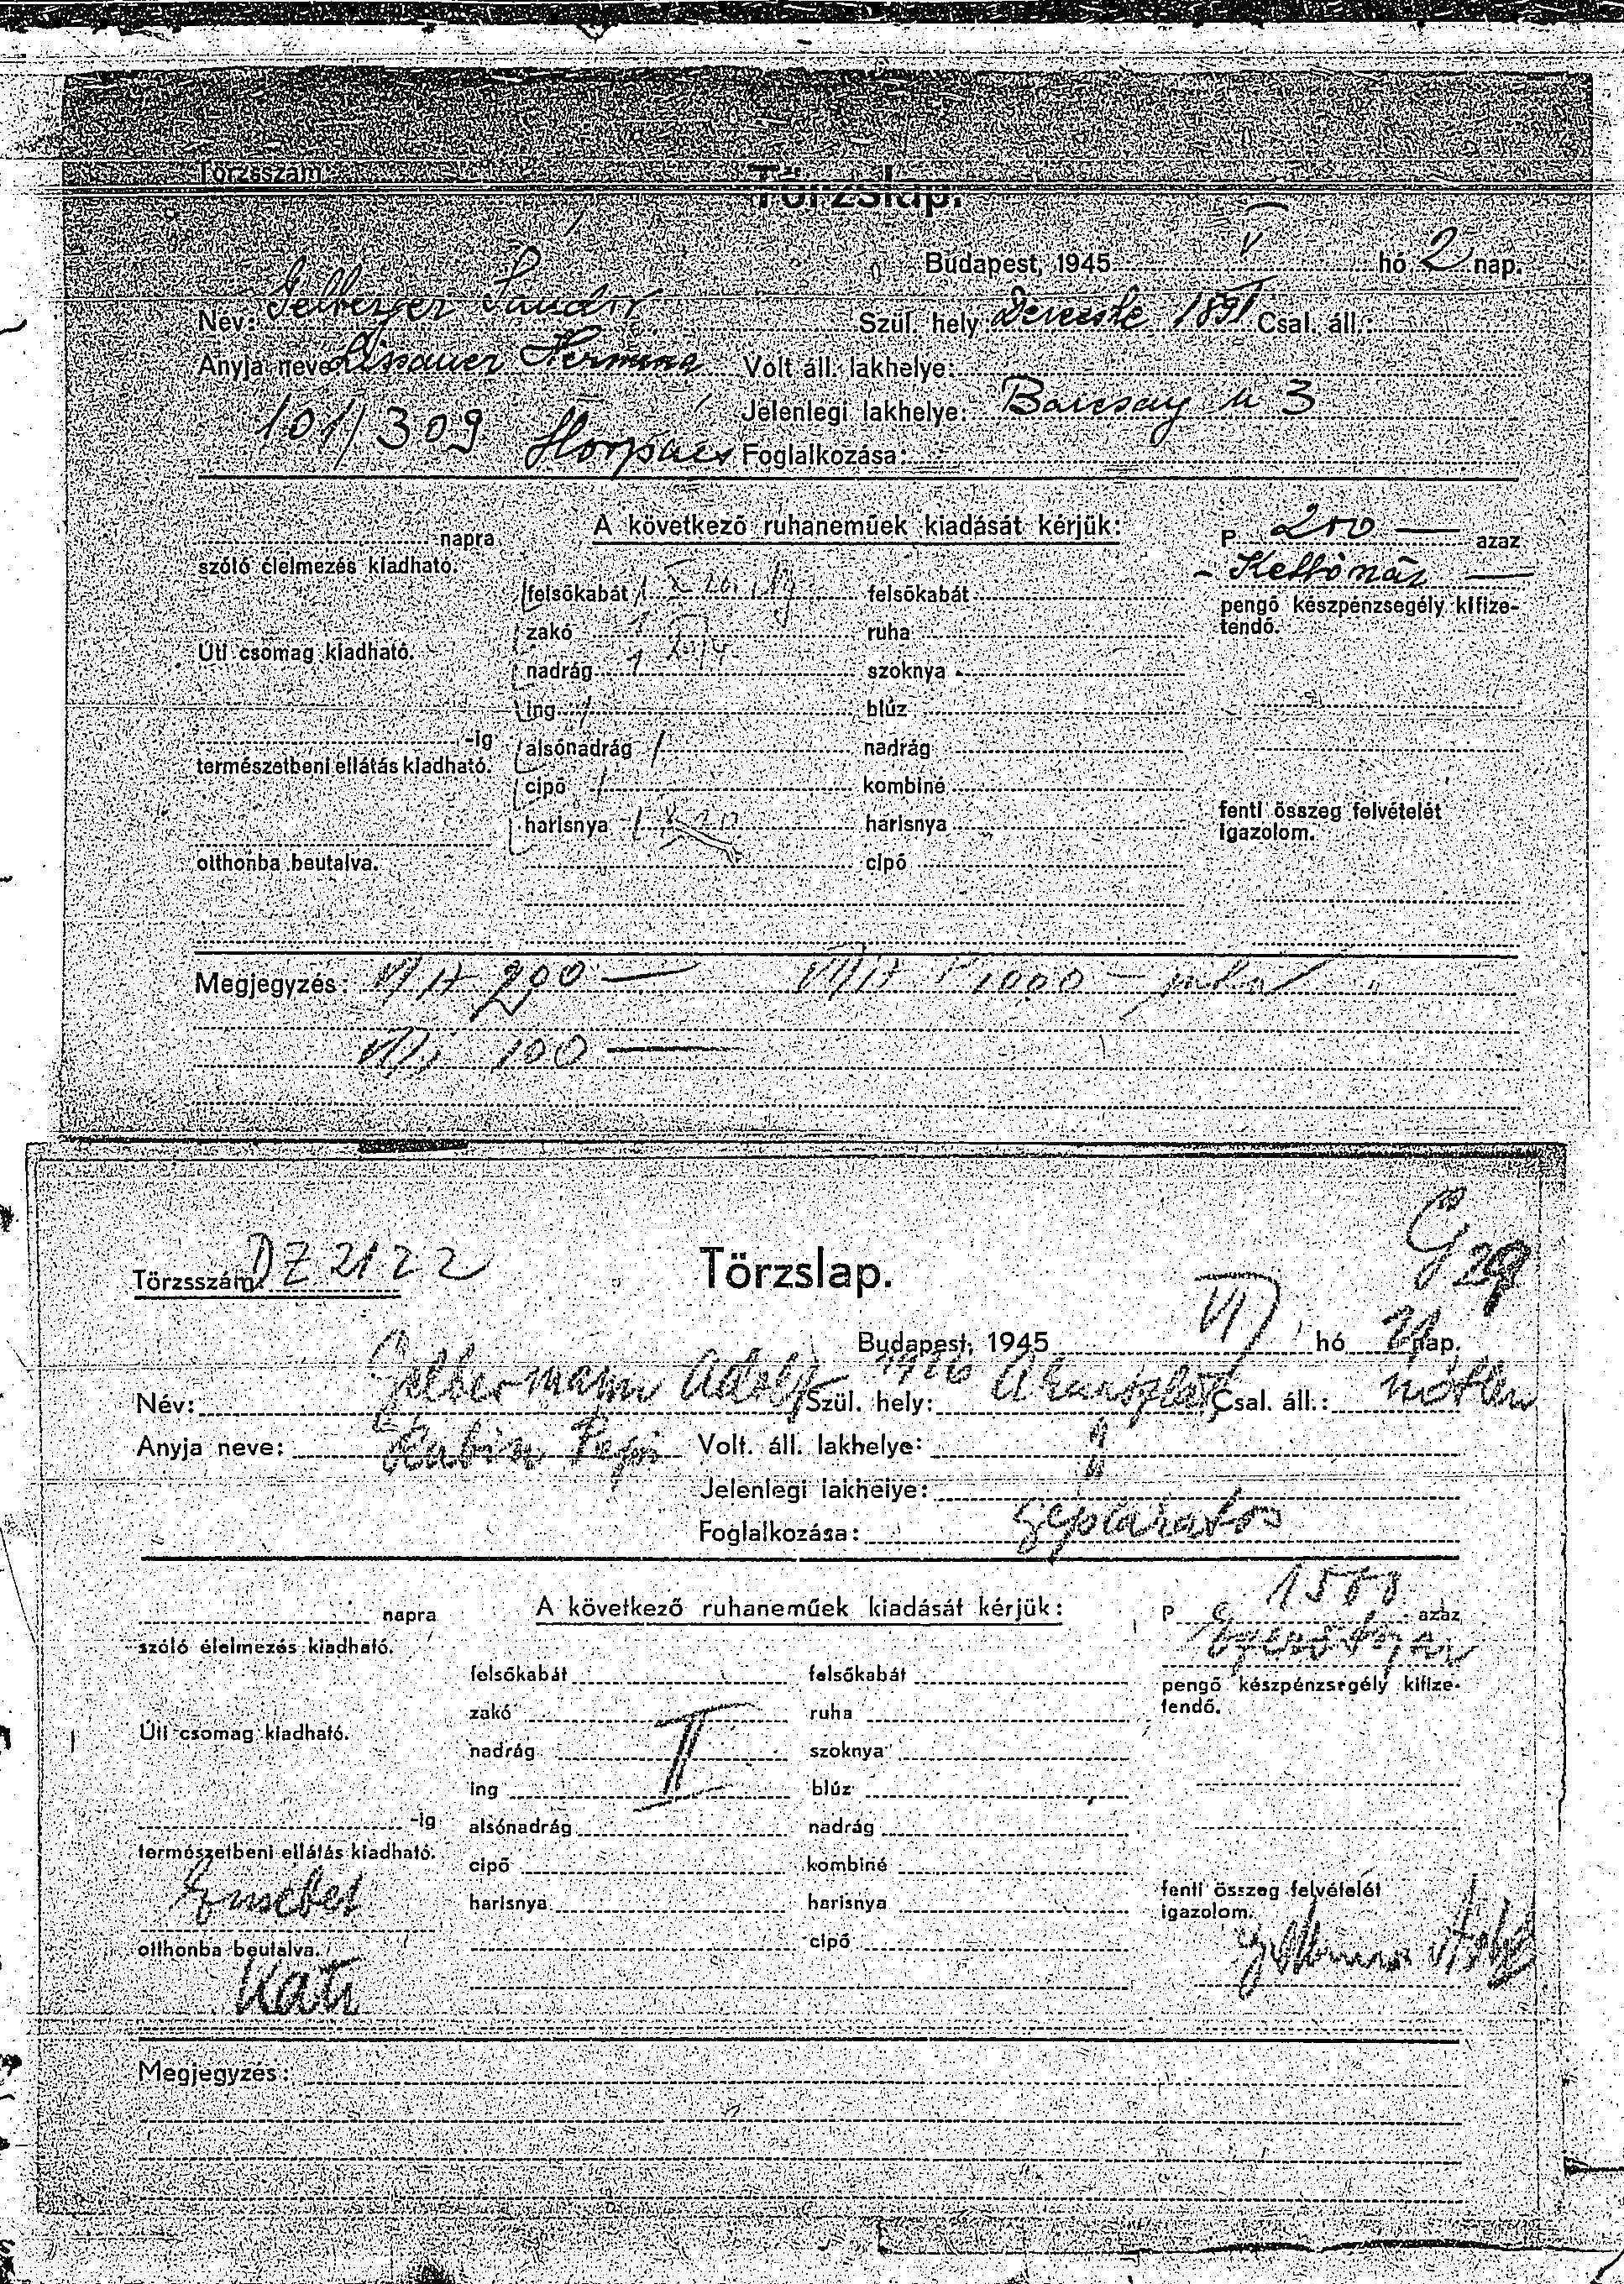 Törzsszám:
Törzslap.
Budapest, 1945 V hó 2 nap.
Név: Gelberger Sándor Szül. hely Derecske 1891 Csal. áll.:
Anyja neve Lissauer Hermina Volt áll. lakhelye:
Jelenlegi lakhelye: Barcsay u 3
101/309 Horpács Foglalkozása:
A következő ruhaneműek kiadását kérjük:
napra
szóló élelmezés kiadható.
P 200 — azaz
Kettőszáz —
pengő készpénzsegély kifize-
tendő.
felsőkabát 1 felsőkabát
zakó 1 ruha
Úti csomag kiadható.
nadrág 1 szoknya
ing 1 blúz
-ig
természetbeni ellátás kiadható.
alsónadrág 1 nadrág
cipő 1 kombiné
harisnya 1 harisnya
fenti összeg felvételét
igazolom.
otthonba beutalva.
cipő
Megjegyzés: 200 — P 1000 —
100 —
G 29
Törzsszám: DZ 2122
Törzslap.
Budapest, 1945 VI hó 21 nap.
Név: Gelbermann Adolf Szül. hely: 1926 Csal. áll.: nőtlen
Anyja neve: Rubin Pepi Volt. áll. lakhelye:
Jelenlegi lakhelye:
Foglalkozása:
A következő ruhaneműek kiadását kérjük:
napra
szóló élelmezés kiadható.
P 1500 azaz
Ezerötszáz
pengő készpénzsegély kifize-
tendő.
felsőkabát felsőkabát
zakó ruha
Úti csomag kiadható.
II
nadrág szoknya
ing blúz
-ig
természetbeni ellátás kiadható.
alsónadrág nadrág
cipő kombiné
harisnya harisnya
fenti összeg felvételét
igazolom.
Erzsébet
otthonba beutalva.
cipő
Gelbermann Adolf
Kati
Megjegyzés: